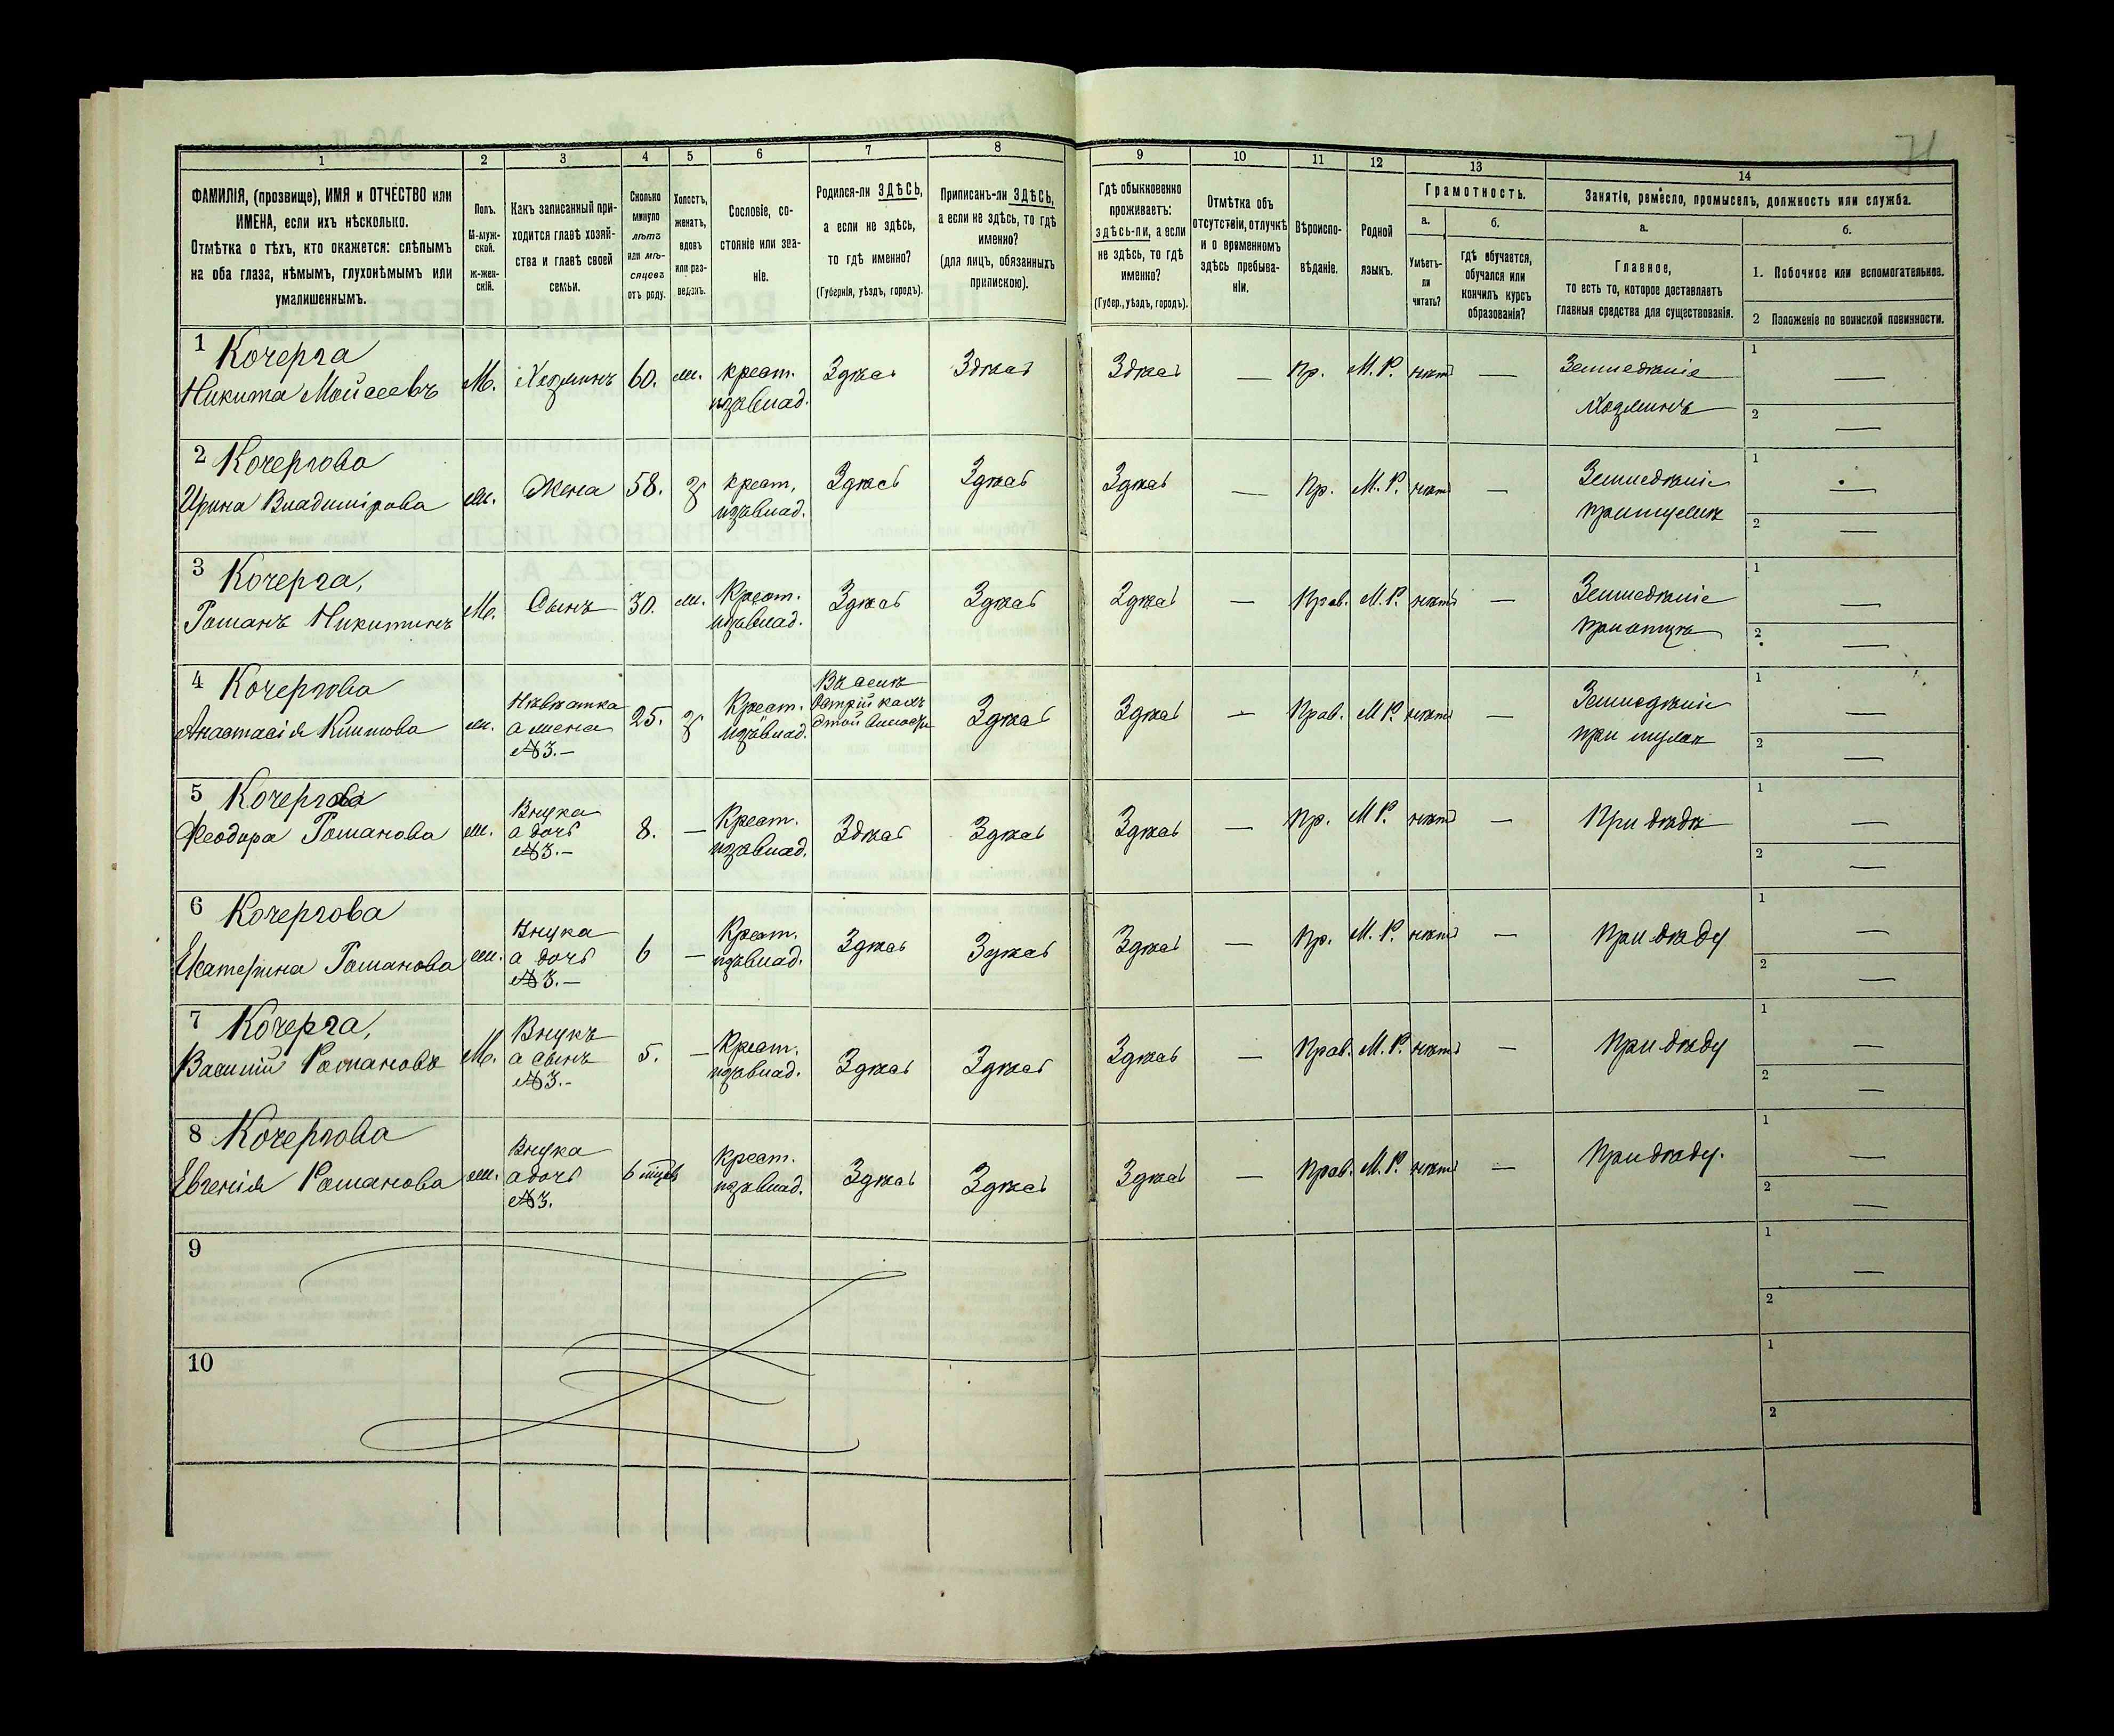 71
1
2
3
4
5
6
7
8
9
10
11
12
13
14
ФАМИЛІЯ, (прозвище), ИМЯ и ОТЧЕСТВО или
ИМЕНА, если ихъ нѣсколько.
Отмѣтка о тѣхъ, кто окажется: слѣпымъ
на оба глаза, нѣмымъ, глухонѣмымъ или
умалишеннымъ.
Полъ.
М-муж-
ской.
ж-жен-
скій.
Какъ записанный при-
ходится главѣ хозяй-
ства и главѣ своей
семьи.
Сколько
минуло
лѣтъ
или мѣ-
сяцевъ
отъ роду.
Холостъ,
женатъ,
вдовъ
или раз-
веденъ.
Сословіе, со-
стояніе или зва-
ніе.
Родился-ли ЗДѢСЬ,
а если не здѣсь,
то гдѣ именно?
(Губернія, уѣздъ, городъ).
Приписанъ-ли ЗДѢСЬ,
а если не здѣсь, то гдѣ
именно?
(для лицъ, обязанныхъ
припискою).
Гдѣ обыкновенно
проживаетъ:
здѣсь-ли, а если
не здѣсь, то гдѣ
именно?
(Губер., уѣздъ, городъ).
Отмѣтка объ
отсутствіи, отлучкѣ
и о временномъ
здѣсь пребыва-
ніи.
Вѣроиспо-
вѣданіе.
Родной
языкъ.
Грамотность.
а.
Умѣетъ-
ли
читать?
б.
гдѣ обучается,
обучался или
кончилъ курсъ
образованія?
Занятіе, ремесло, промыселъ, должность или служба.
а.
Главное,
то есть то, которое доставляетъ
главныя средства для существованія.
б.
1. Побочное или вспомогательное.
2 Положеніе по воинской повинности.
1 Кочерга
Никита Мойсеевъ
М.
Хозяинъ
60.
ж.
крест.
изъ влад.
Здѣсь
Здѣсь
Здѣсь
—
Пр.
М. Р.
нѣтъ
—
Земледѣліе
Хозяинъ
1 —
2 —
2 Кочергова
Ирина Владимірова
ж.
Жена
58.
з
крест.
изъ влад.
Здѣсь
Здѣсь
Здѣсь
—
Пр.
М. Р.
нѣтъ
—
Земледѣліе
при мужѣ
1 —
2 —
3 Кочерга,
Романъ Никитинъ
М.
Сынъ
30.
ж.
Крест.
изъ влад.
Здѣсь
Здѣсь
Здѣсь
—
Прав.
М. Р.
нѣтъ
—
Земледѣліе
при отцѣ
1 —
2 —
4 Кочергова
Анастасія Климова
ж.
Невѣстка
а жена
№ 3.—
25.
з
Крест.
изъ влад.
Здѣсь
Здѣсь
—
Прав.
М Р.
нѣтъ
—
Земледѣліе
при мужѣ
1 —
2 —
5 Кочергова
Феодора Романова
ж.
Внука
а дочь
№ 3.—
8.
—
Крест.
изъ влад.
Здѣсь
Здѣсь
Здѣсь
—
Пр.
М Р.
нѣтъ
—
При дѣдѣ
1 —
2 —
6 Кочергова
Екатерина Романова
ж.
Внука
а дочь
№ 3.—
6
—
Крест.
изъ влад.
Здѣсь
Здѣсь
Здѣсь
—
Пр.
М. Р.
нѣтъ
—
При дѣду
1 —
2 —
7 Кочерга,
Василій Романовъ
М.
Внукъ
а сынъ
№ 3.-
5.
—
Крест.
изъ влад.
Здѣсь
Здѣсь
Здѣсь
—
Прав.
М. Р.
нѣтъ
—
При дѣду
1 —
2 —
8 Кочергова
Евгенія Романова
ж.
Внука
а дочь
№ 3.
6 мцев
крест.
изъ влад.
Здѣсь
Здѣсь
Здѣсь
—
Прав.
М. Р.
нѣтъ
—
При дѣду.
1 —
2 —
9
1 —
2
10
1
2